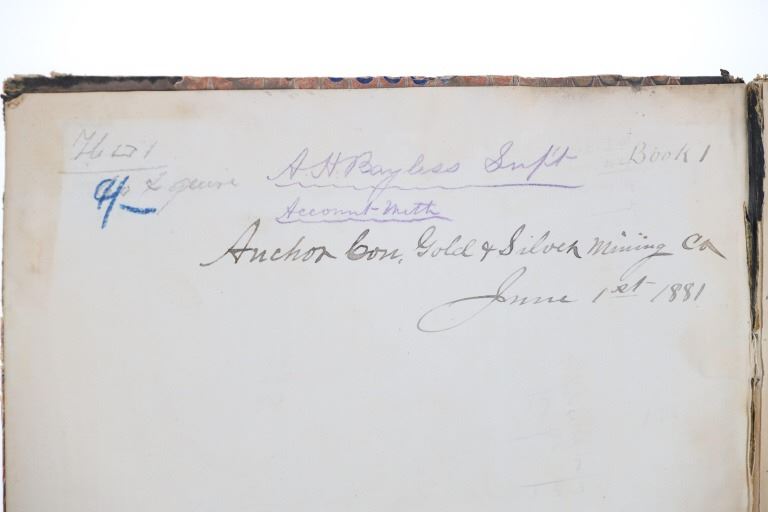 A H Bayless Supt
Book 1
Account With
Anchor Con. Gold & Silver Mining Co
June 1st 1881